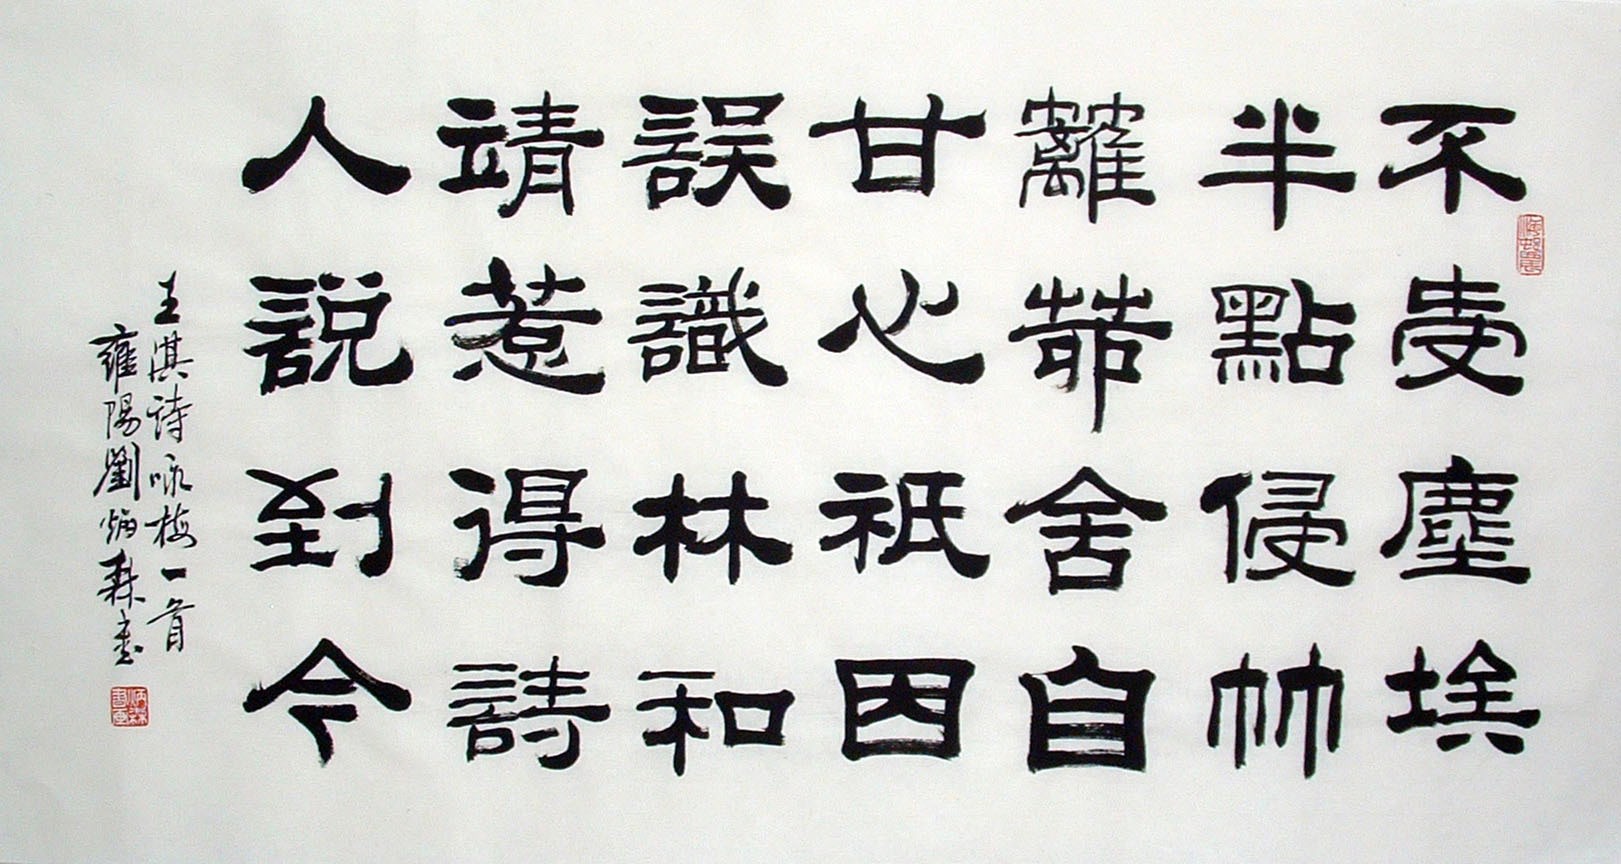 不受塵埃
半點侵竹
籬茆舍自
甘心祇因
誤識林和
靖惹得詩
人説到今
王淇詩咏梅一首
雍陽劉炳森書
炳森書画